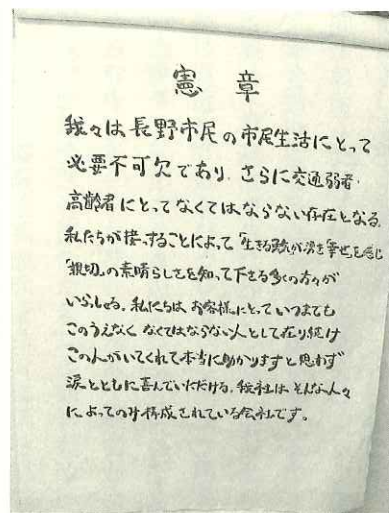 憲章
我々は長野市民の市民生活にとって
必要不可欠であり、さらに交通弱者・
高齢者にとってなくてはならない存在となる。
私たちが接することによって「生きる勇気が湧き幸せ」を感じ
「親切」の素晴らしさを知って下さる多くの方々が
いらっしゃる。私たちは、お客様にとっていつまでも
このうえなくなくてはならない人として在り続け
この人がいてくれて本当に助かりますと思わず
涙とともに喜んでいただける、我社は、そんな人々
によってのみ構成されている会社です。